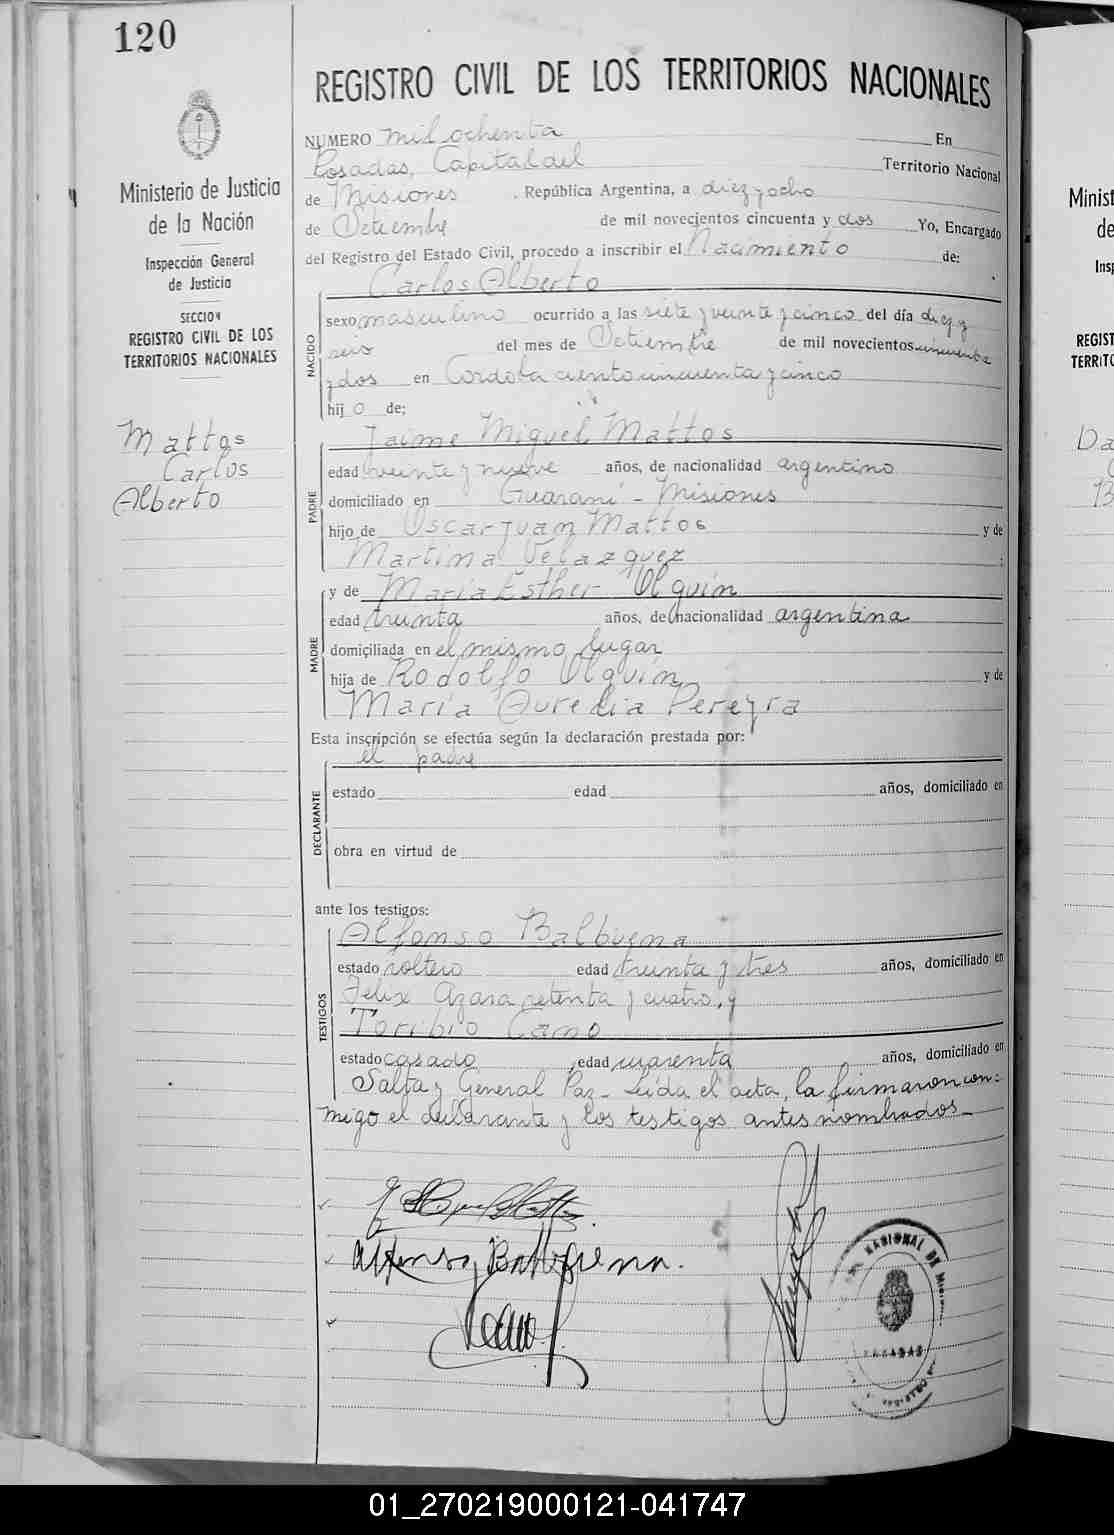 120
Ministerio de Justicia
de la Nación
Inspección General
de Justicia
SECCION
REGISTRO CIVIL DE LOS
TERRITORIOS NACIONALES
Mattos
Carlos
Alberto
REGISTRO CIVIL DE LOS TERRITORIOS NACIONALES
NUMERO mil ochenta En
Posadas, Capital del Territorio Nacional
de Misiones . República Argentina, a diez y ocho
de Setiembre de mil novecientos cincuenta y dos Yo, Encargado
del Registro del Estado Civil, procedo a inscribir el Nacimiento de:
Carlos Alberto
NACIDO
sexo masculino ocurrido a las siete y veinte y cinco del día diez y
seis del mes de Setiembre de mil novecientos cincuenta
y dos en Cordoba ciento cincuenta y cinco
hij o de:
Jaime Miguel Mattos
PADRE
edad veinte y nueve años, de nacionalidad argentino
domiciliado en Guaraní - Misiones
hijo de Oscar Juan Mattos y de
Martina Velazquez :
MADRE
y de María Esther Olguín
edad treinta años, de nacionalidad argentina
domiciliada en el mismo lugar
hija de Rodolfo Olguín y de
María Aurelia Pereyra
Esta inscripción se efectúa según la declaración prestada por:
el padre
DECLARANTE
estado edad años, domiciliado en
obra en virtud de
ante los testigos:
TESTIGOS
Alfonso Balbuena
estado soltero edad treinta y tres años, domiciliado en
Felix Azara setenta y cuatro, y
Toribio Cano
estado casado , edad cuarenta años, domiciliado en
Salta y General Paz - Leída el acta, la firmaron con-
migo el declarante y los testigos antes nombrados -
Alfonso Balbuena.
Cano
NACIONAL DE
POSADAS
REGISTRO
Minist
de
Insp
REGIST
TERRITO
Da
01_270219000121-041747